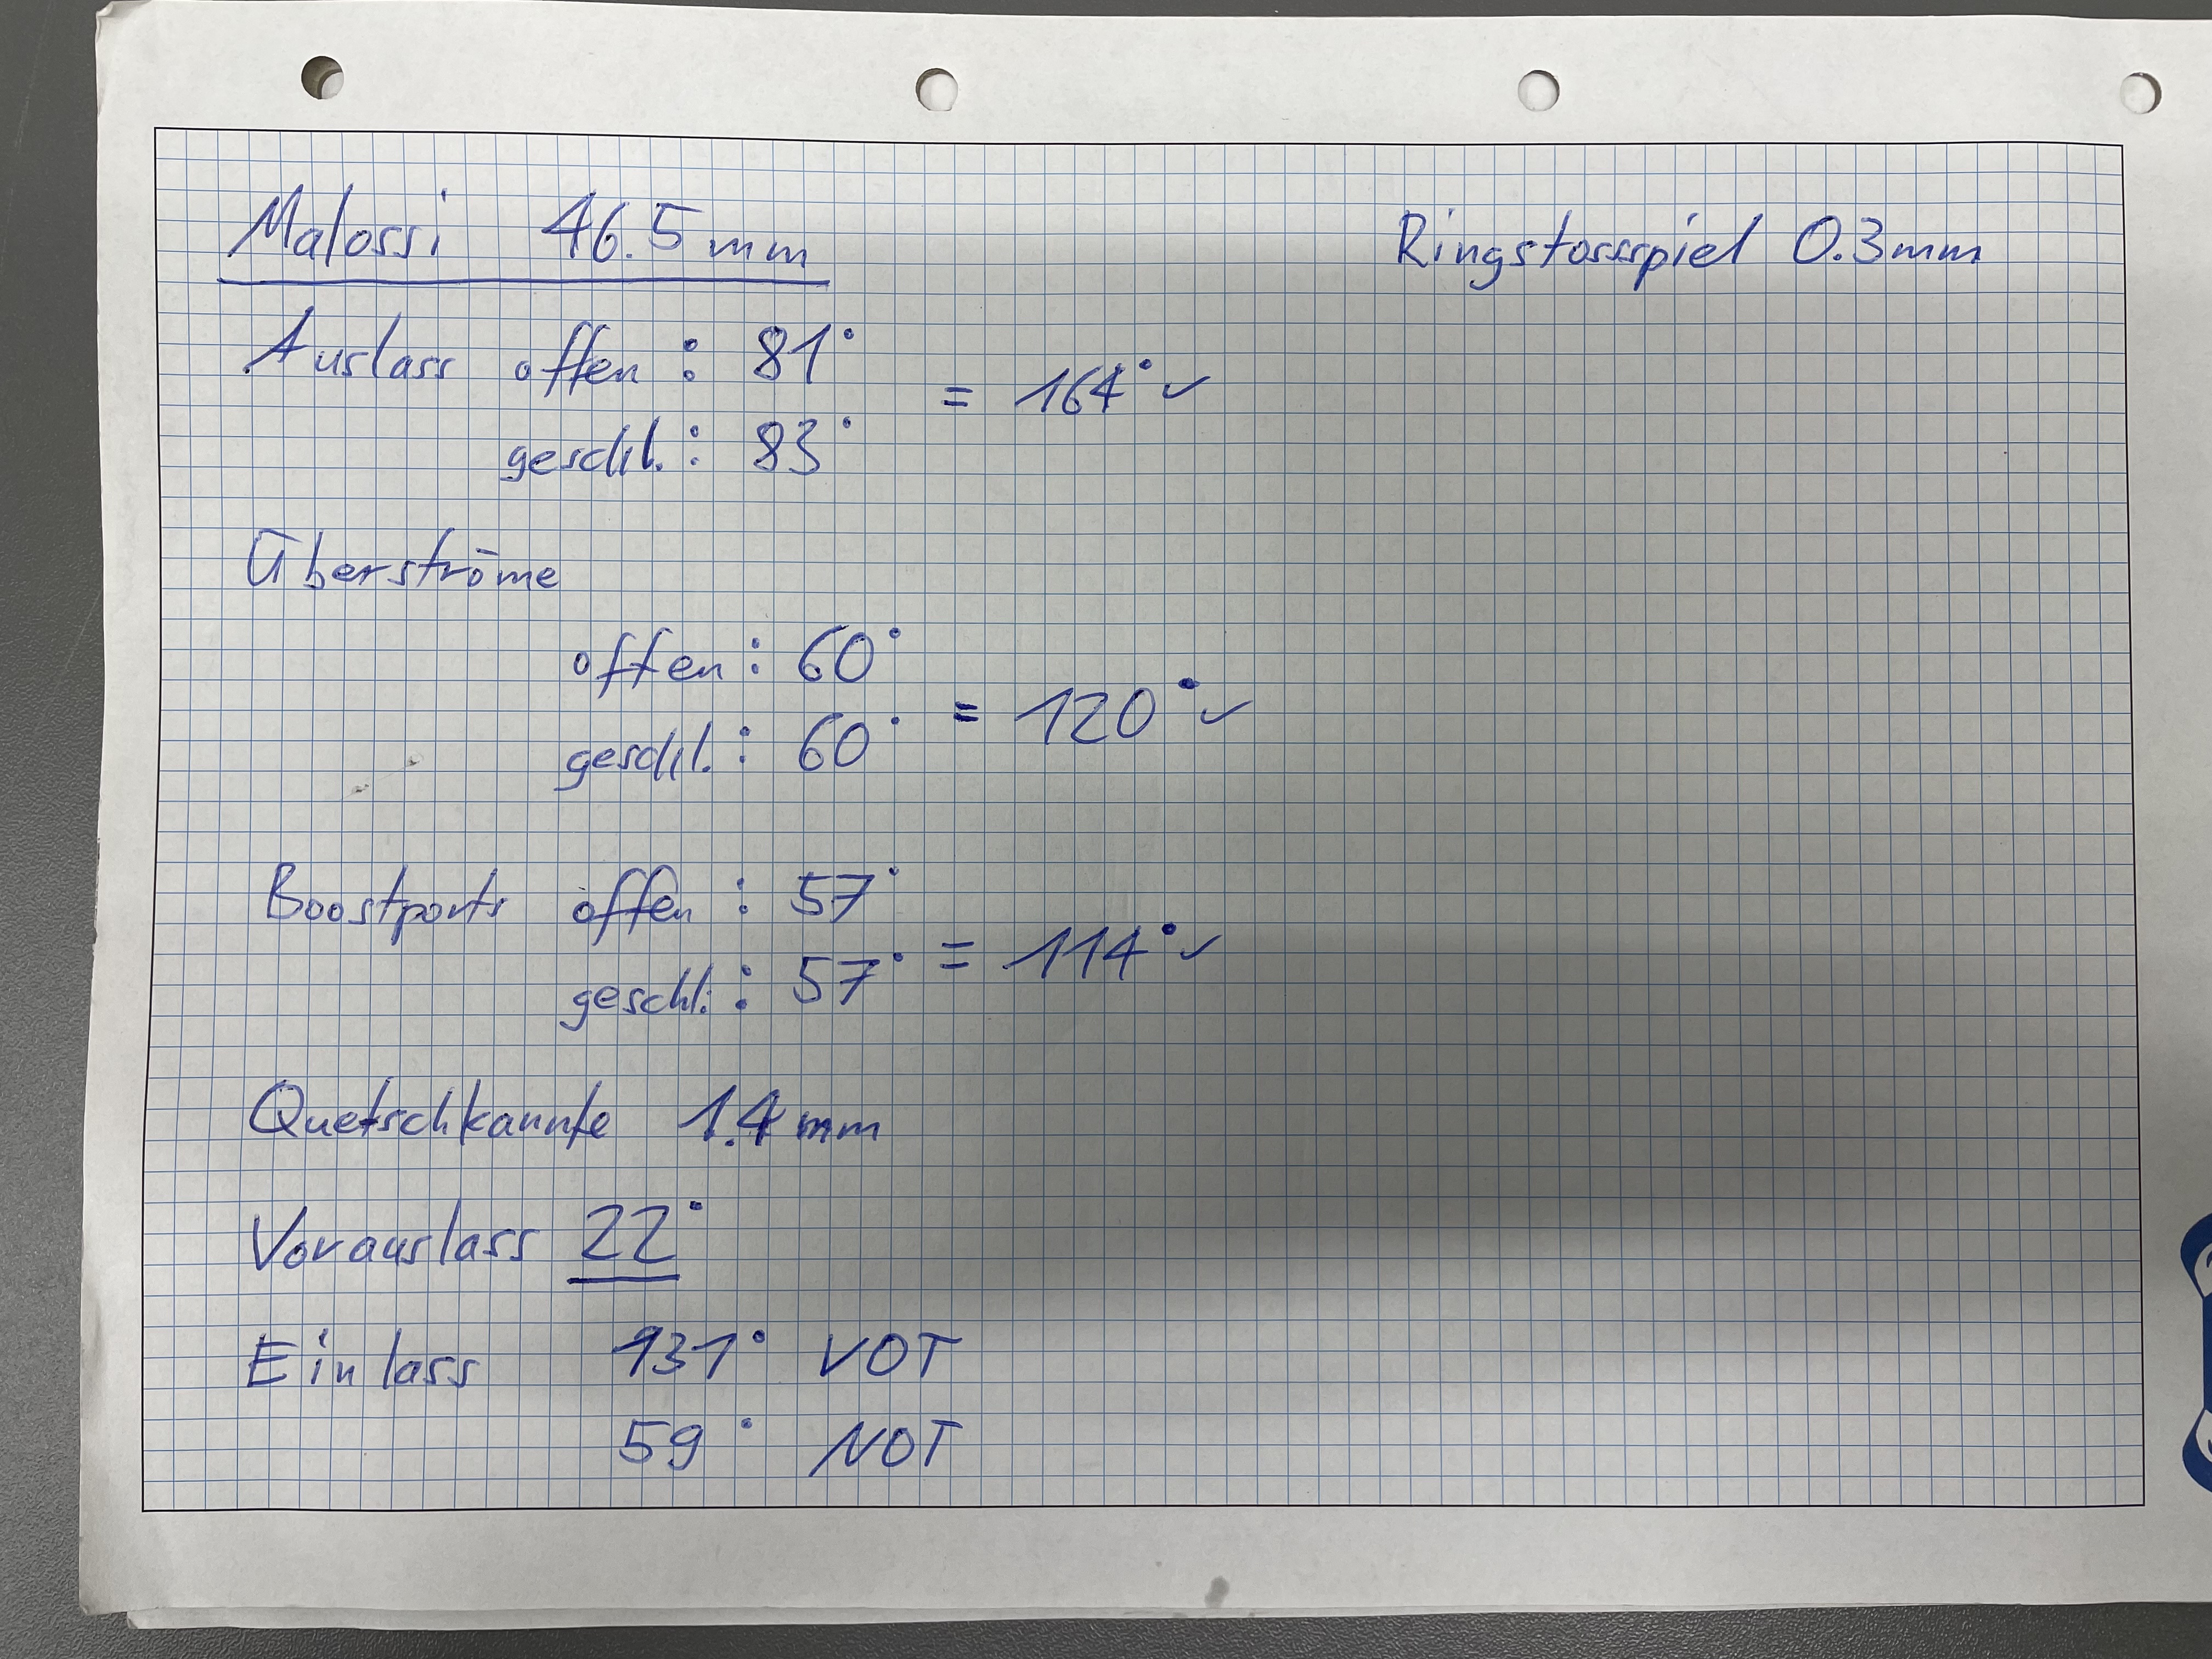 Malossi 46.5mm
Ringstossspiel 0.3mm
Auslass offen : 81°
= 164° ✓
geschl. : 83°
Überströme
offen : 60°
= 120° ✓
geschl. : 60°
Boostports offen : 57°
= 114° ✓
geschl. : 57°
Quetschkannte 1.4mm
Vorauslass 22°
Einlass 131° VOT
59° NOT